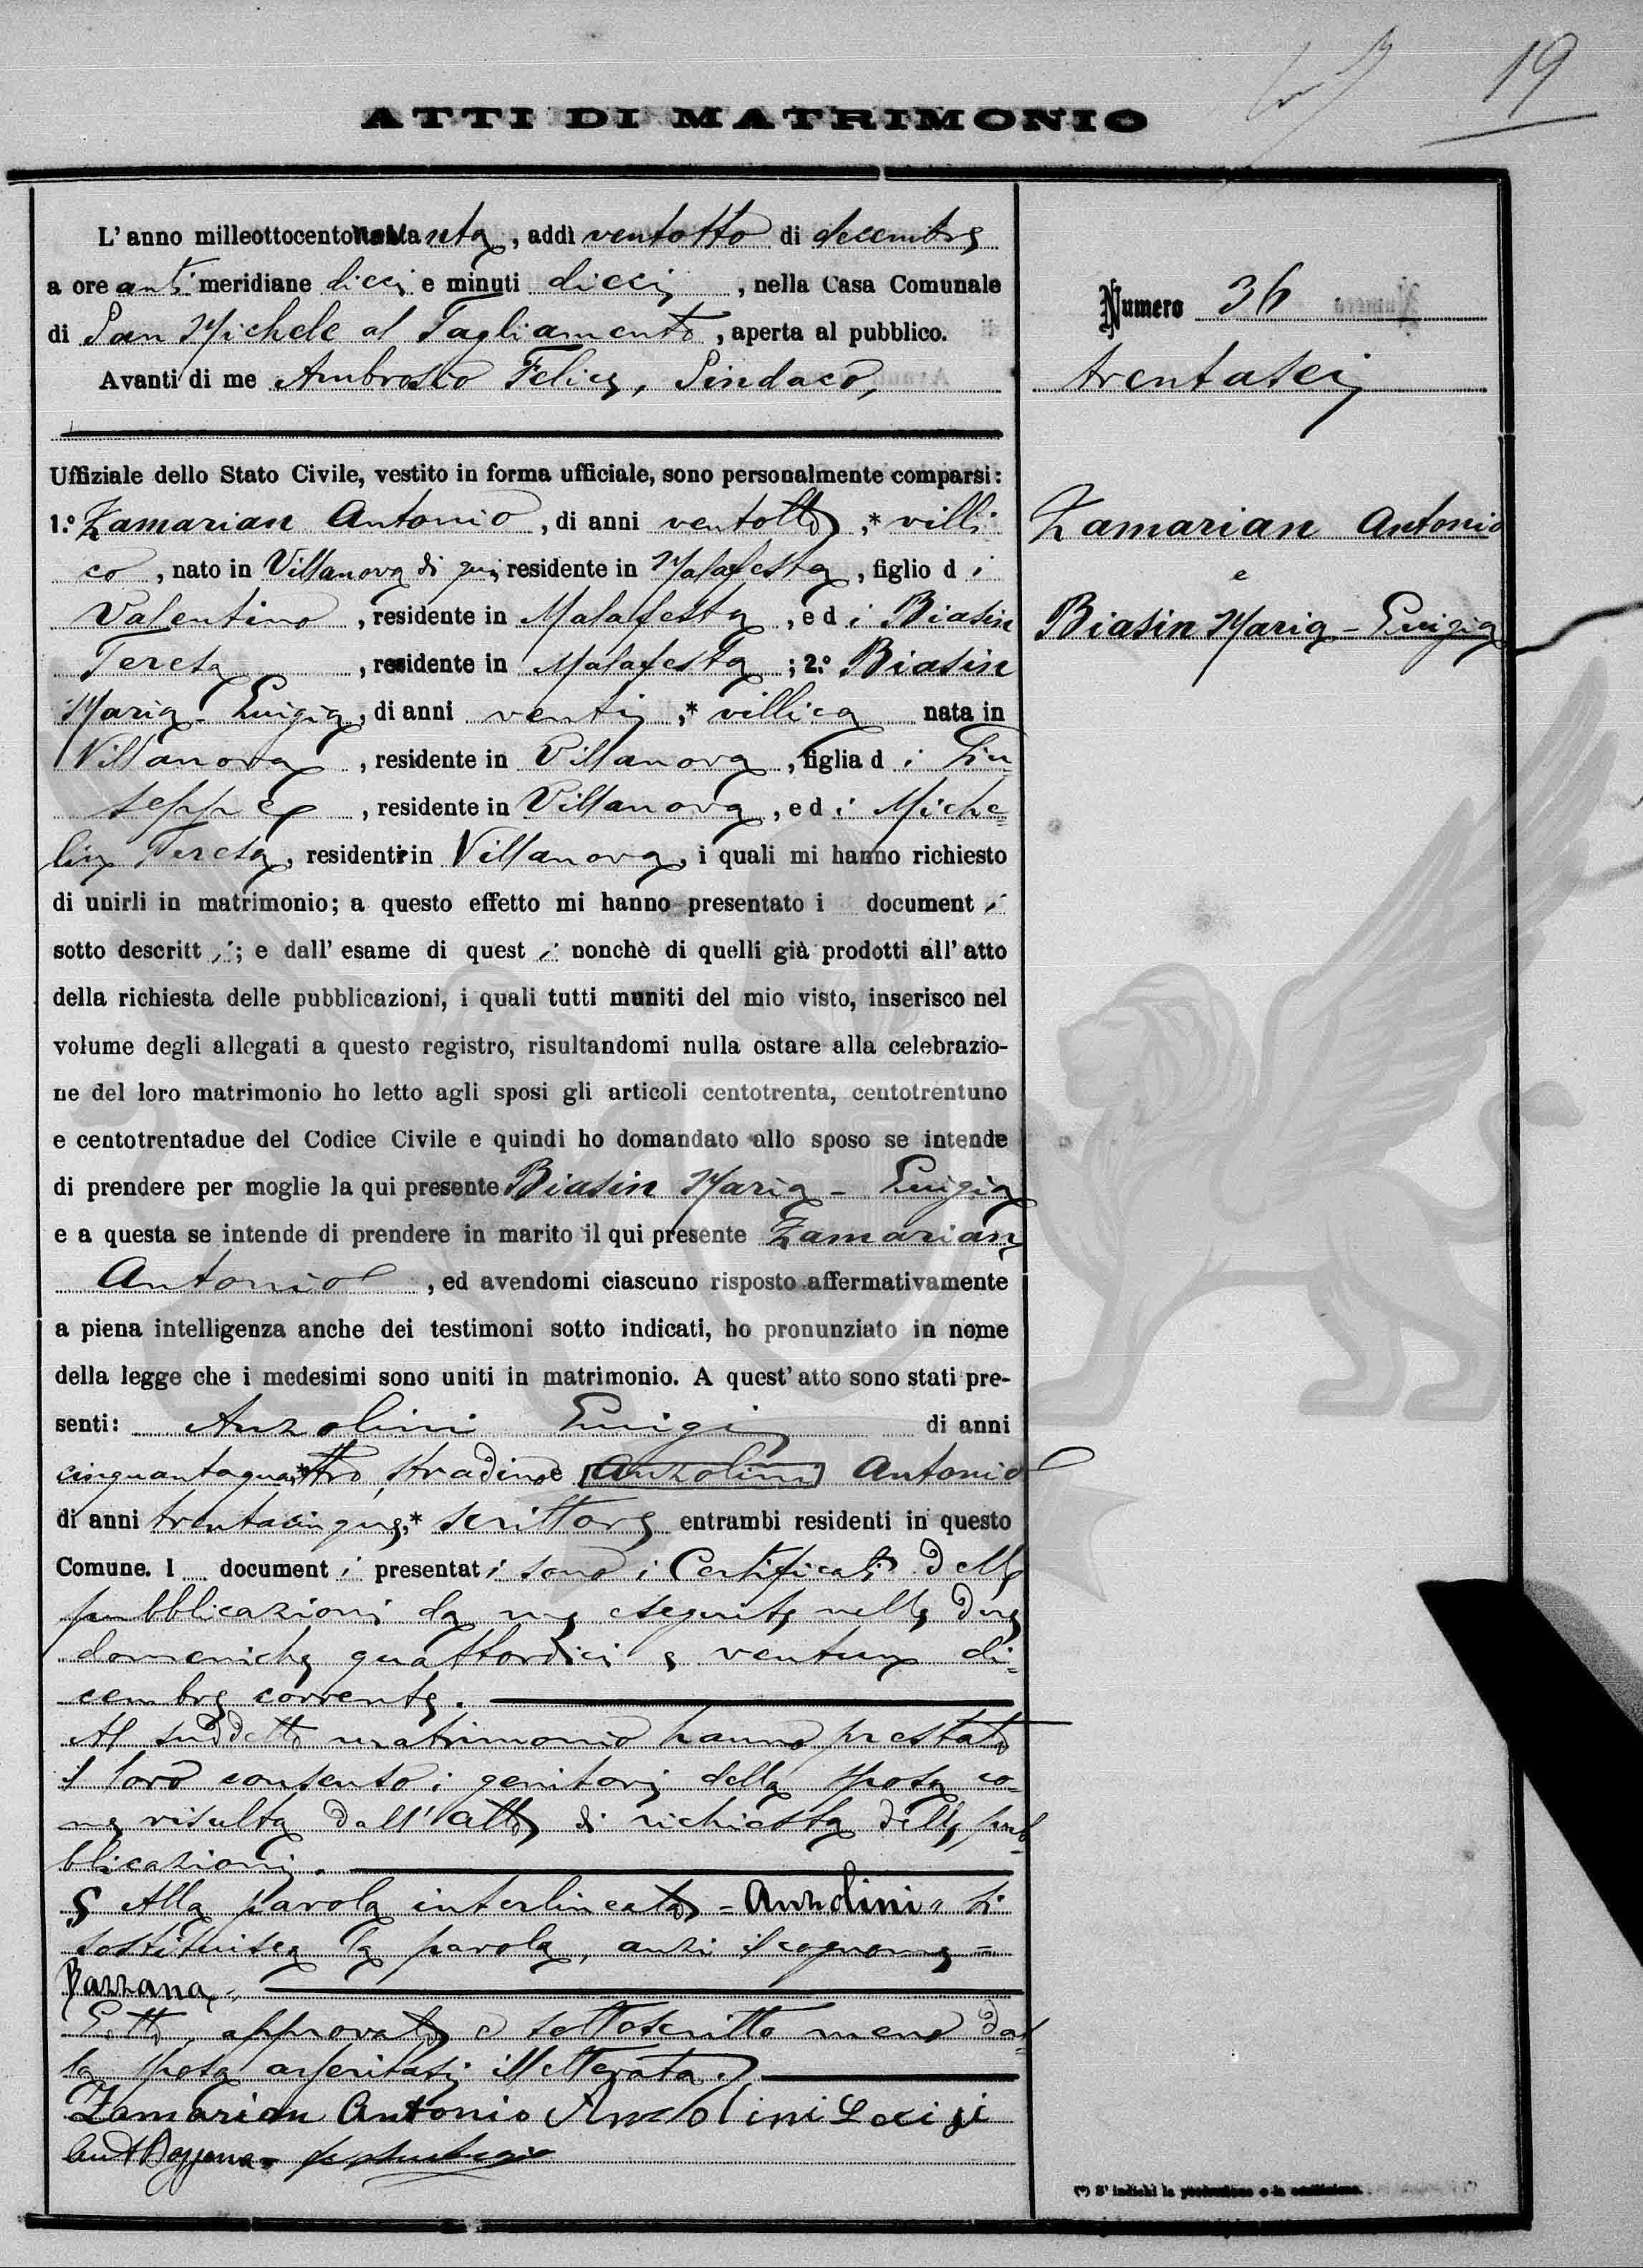 19
ATTI DI MATRIMONIO
L'anno milleottocentonovanta, addì ventotto di decembre
a ore anti meridiane dieci e minuti dieci, nella Casa Comunale
di San Michele al Tagliamento, aperta al pubblico.
Avanti di me Ambrosio Felice, Sindaco,
Uffiziale dello Stato Civile, vestito in forma ufficiale, sono personalmente comparsi:
1.º Zamarian Antonio, di anni ventotto,* villi
co, nato in Villanova di qui, residente in Malafesta, figlio di
Valentino, residente in Malafesta, e di Biasin
Teresa, residente in Malafesta; 2.º Biasin
Maria-Luigia, di anni venti,* villica nata in
Villanova, residente in Villanova, figlia di Giu
seppe, residente in Villanova, e di Miche=
lin Teresa, residenti in Villanova, i quali mi hanno richiesto
di unirli in matrimonio; a questo effetto mi hanno presentato i documenti
sotto descritti; e dall'esame di questi nonchè di quelli già prodotti all'atto
della richiesta delle pubblicazioni, i quali tutti muniti del mio visto, inserisco nel
volume degli allegati a questo registro, risultandomi nulla ostare alla celebrazio-
ne del loro matrimonio ho letto agli sposi gli articoli centotrenta, centotrentuno
e centotrentadue del Codice Civile e quindi ho domandato allo sposo se intende
di prendere per moglie la qui presente Biasin Maria - Luigia
e a questa se intende di prendere in marito il qui presente Zamarian
Antonio, ed avendomi ciascuno risposto affermativamente
a piena intelligenza anche dei testimoni sotto indicati, ho pronunziato in nome
della legge che i medesimi sono uniti in matrimonio. A quest'atto sono stati pre-
senti: Anzolini Luigi di anni
cinquantaquattro,* stradino e Anzolini Antonio
di anni trentacinque,* scrittore entrambi residenti in questo
Comune. I documenti presentati sono i Certificati delle
pubblicazioni da me eseguite nelle due
domeniche quattordici e ventuno di=
cembre corrente.
Al suddetto matrimonio hanno prestato
il loro consenso i genitori della sposa co=
me risulta dall'atto di richiesta delle pub=
blicazioni.
§ Alla parola interlineata = Anzolini " si
sostituisca la parola, anzi il cognome =
Bazzana.
Letto, approvato e sottoscritto meno dal
la sposa asseritasi illetterata.
Zamarian Antonio Anzolini Loigi
Ant Bazzana
Numero 36
trentasei
Zamarian Antonio
e
Biasin Maria-Luigia
(*) S'indichi la professione o la condizione.